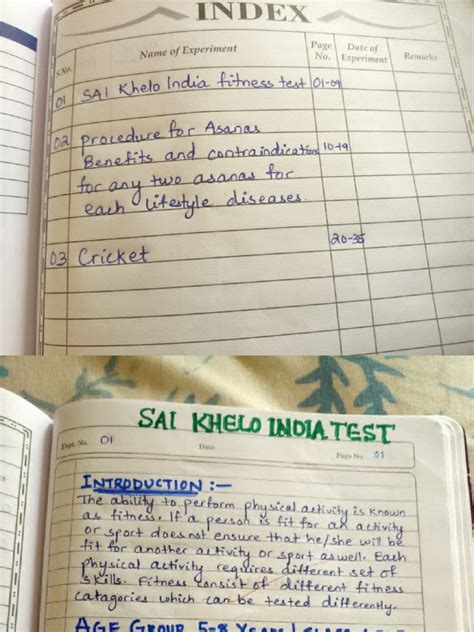 INDEX
S.No. Name of Experiment Page No. Date of Experiment Remarks
01 SAI Khelo India fitness test 01-09
02 Procedure for Asanas
Benefits and contraindication 10-19
for any two asanas for
each lifestyle diseases.
20-35
03 Cricket
SAI KHELO INDIA TEST
Expt. No. 01 Date Page No. 01
INTRODUCTION :-
The ability to perform physical activity is known
as fitness. If a person is fit for an activity
or sport does not ensure that he/she will be
fit for another activity or sport as well. Each
physical activity requires different set of
skills. Fitness consist of different fitness
catagories which can be tested differently.
AGE GROUP 5-8 YEARS